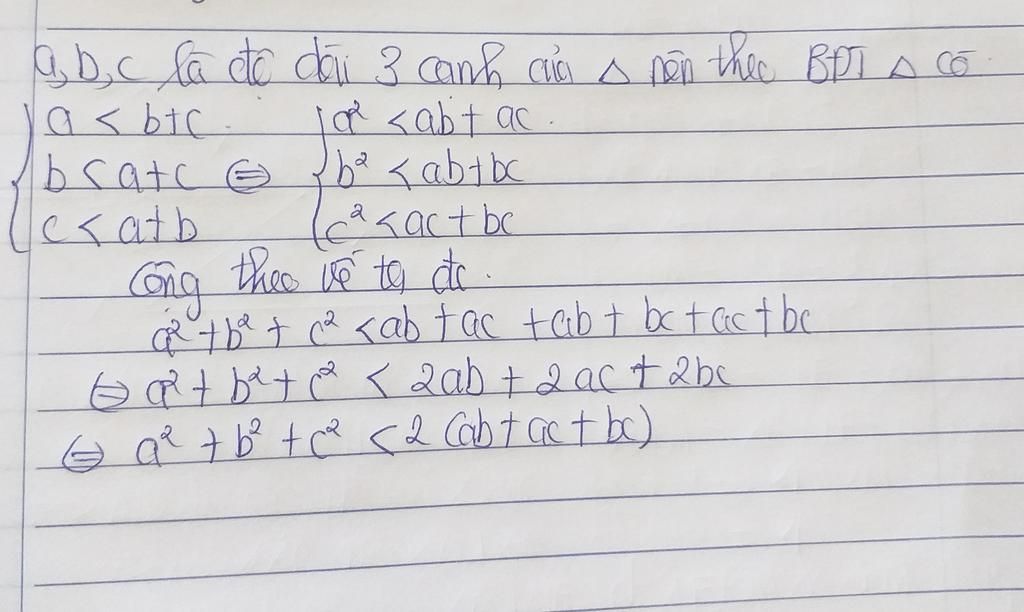 a,b,c là độ dài 3 cạnh của Δ nên theo BĐT Δ có
{ a < b+c { a² < ab + ac.
b < a+c ⇔ b² < ab+bc
c < a+b c² < ac + bc
Cộng theo vế ta đc.
a² + b² + c² < ab + ac + ab + bc + ac + bc
⇔ a² + b² + c² < 2ab + 2ac + 2bc
⇔ a² + b² + c² < 2 (ab + ac + bc)